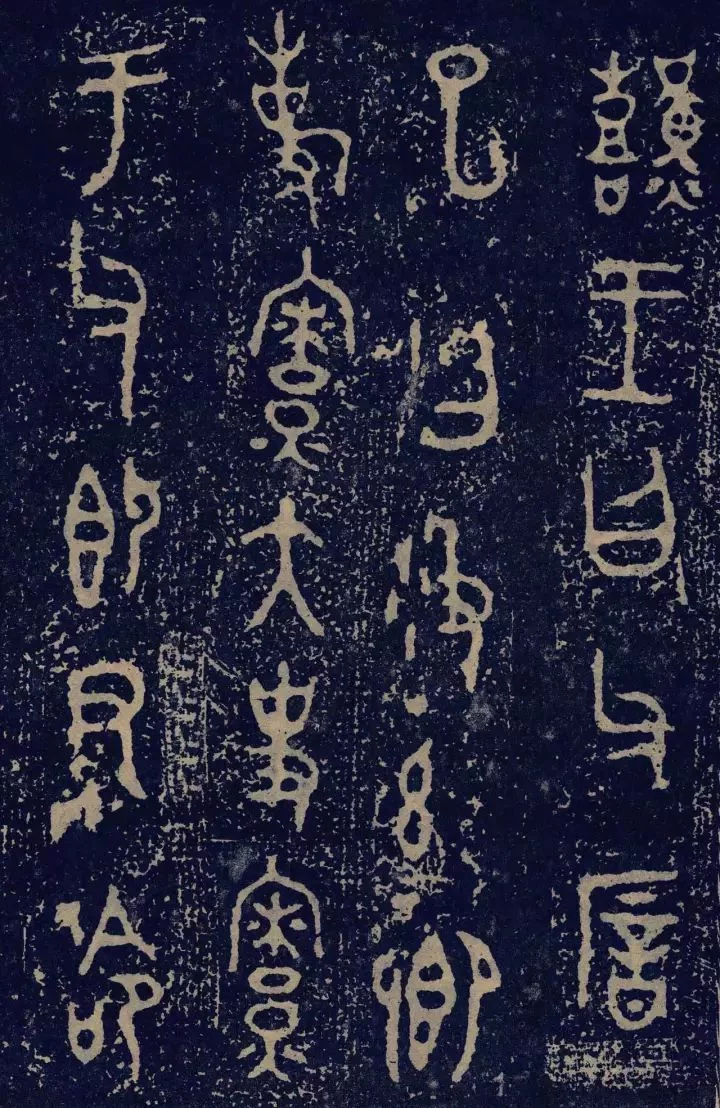 囏王曰父厝
巳曰彶茲卿
事寮大史寮
于父即尹命